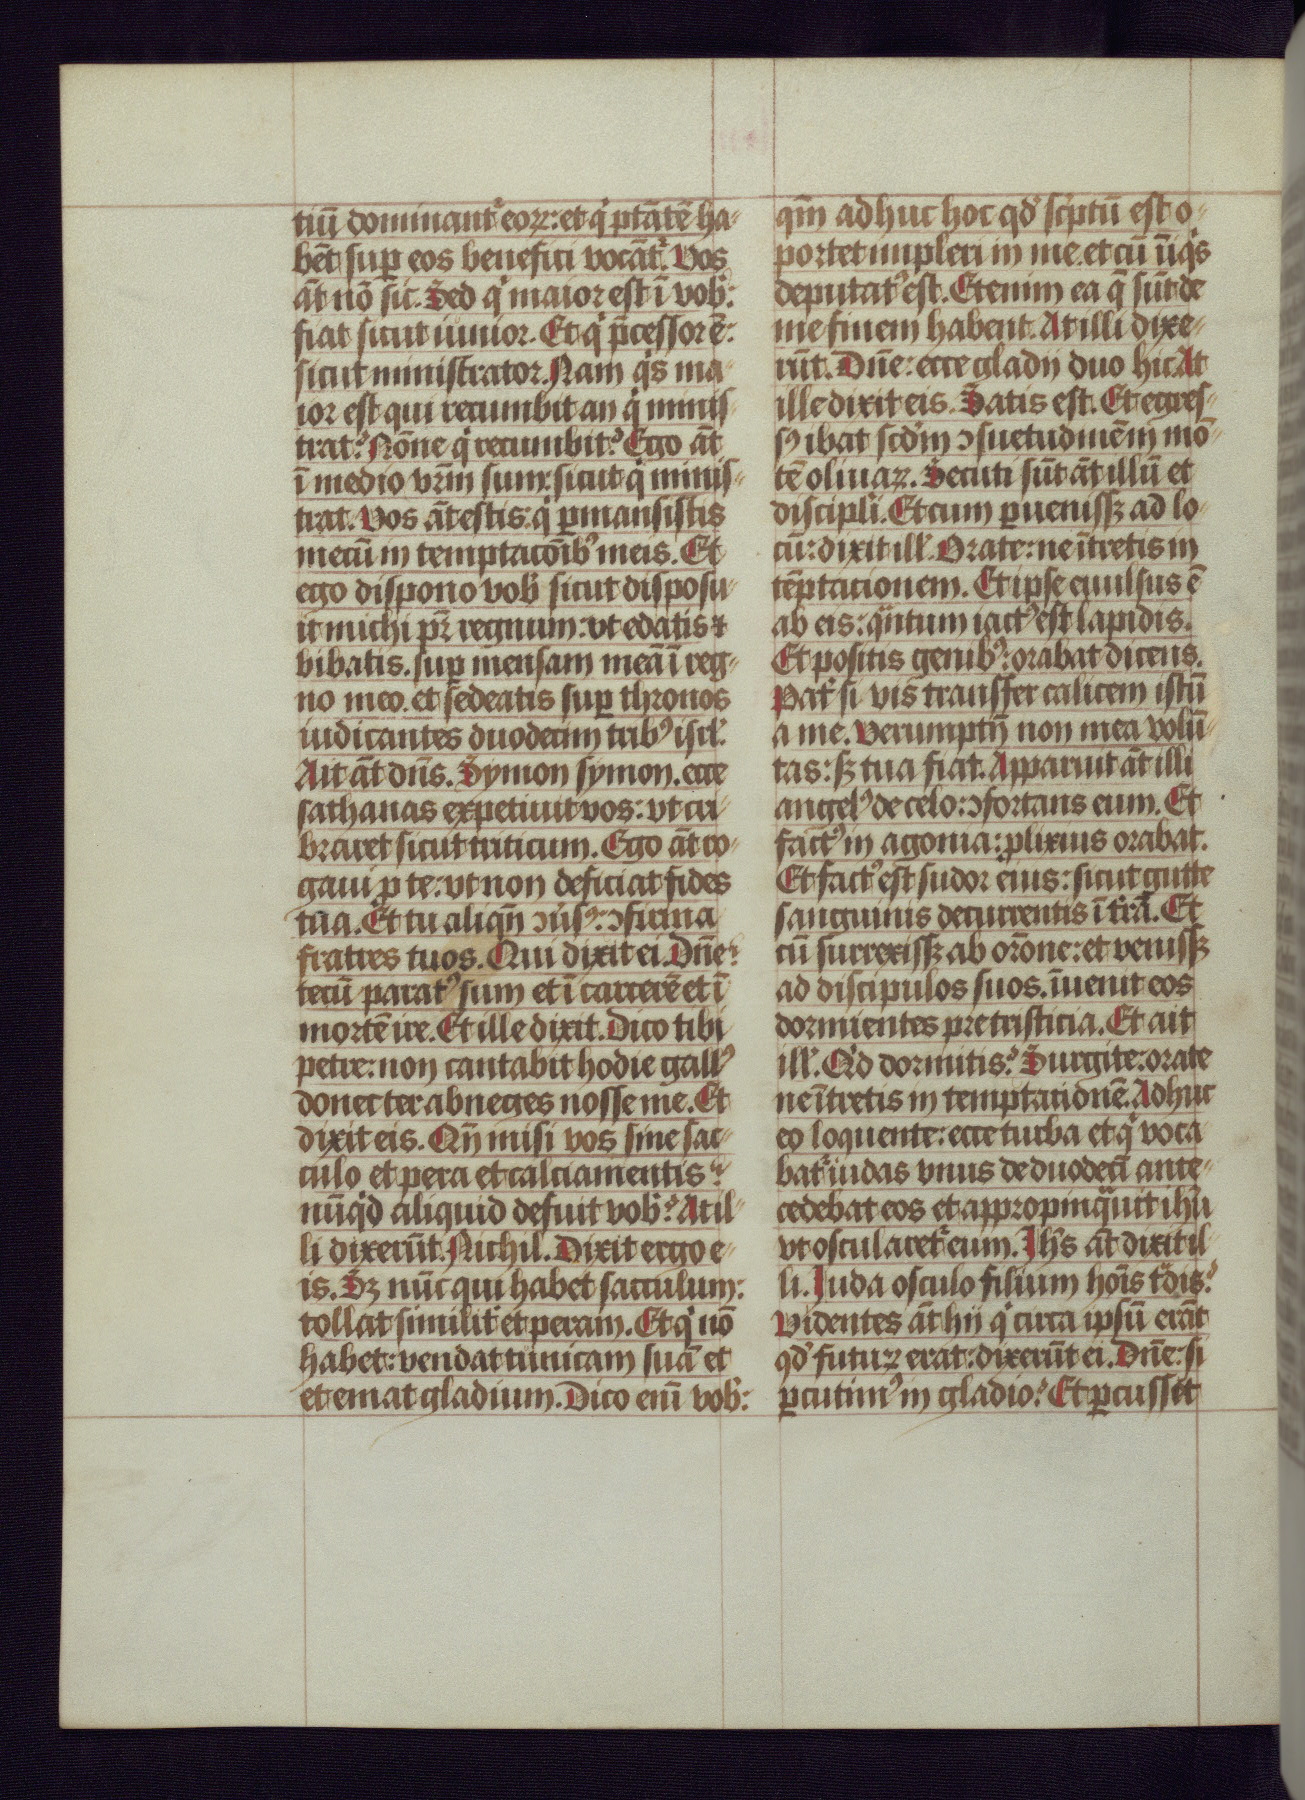 tiū dominant᷑ eoꝝ: et q̇ ptātē ha-
bēt sup eos benefici vocāt᷑. Vos
āt nō sic. Sed q̇ maior est ī vob̾:
fiat sicut iunior. Et q̇ p̄cessor ē:
sicut ministrator. Nam q̇s ma-
ior est qui recumbit an q̇ minis-
trat? Nōne q̇ recumbit? Ego āt
ī medio vr̄m sum: sicut q̇ minis-
trat. Vos āt estis: q̇ ꝑmansistis
mecū in temptacōib⁹ meis. Et
ego dispono vob̾ sicut disposu-
it michi pr̄ regnum: vt edatis ⁊
bibatis. suꝑ mensam meā ī reg-
no meo. et sedeatis suꝑ thronos
iudicantes duodecim trib⁹ isrl̾.
Ait āt dn̄s. Symon symon. ecce
sathanas expetiuit vos: vt cri-
braret sicut triticum. Ego āt ro-
gaui ꝓ te: vt non deficiat fides
tua. Et tu aliqn̄ ↄu̇sꝰ: ↄfirma
fratres tuos. Qui dixit ei. Dn̄e:
tecū parat⁹ sum et ī carcerē et ī
mortē ire. Et ille dixit. Dico tibi
petre: non cantabit hodie gall⁹
donec ter abneges nosse me. Et
dixit eis. Qn̄ misi vos sine sac-
culo et pera et calciamentis:
nūq̇d aliquid defuit vob̾? At il-
li dixerūt. Nichil. Dixit ergo e-
is. Sꝫ nūc qui habet sacculum:
tollat similit᷑ et peram. Et q̇ nō
habet: vendat tunicam suā et
et emat gladium. Dico enī vob̾:
qm̄ adhuc hoc qd̾ sc̓ptū est o-
portet impleri in me. et cū īiq̇s
deputat⁹ est. Etenim ea q̄ sūt de
me finem habent. At illi dixe-
rūt. Dn̄e: ecce gladij duo hic At
ille dixit eis. Satis est. Et egres-
s⁹ ibat scd̾m ↄsuetudinēm mō-
tē oliuaꝝ. Secuti sūt āt illū et
discipli̾. Et cum ꝑuenissꝫ ad lo-
cū: dixit ill̾. Orate: ne ītretis in
tēptacionem. Et ipse euulsus ē
ab eis: qͣntum iact⁹ est lapidis.
Et positis genib⁹: orabat dicens.
Pat᷑ si vis transfer calicem istū
a me. Verumptn̄ non mea volū-
tas: sꝫ tua fiat. Apparuit āt illi
angel⁹ de celo: ↄfortans eum. Et
fact⁹ in agonia: ꝓlixius orabat.
Et fact⁹ est sudor eius: sicut gutte
sanguinis decurrentis ī tr̄ā. Et
cū surrexissꝫ ab or̄one: et venissꝫ
ad discipulos suos. īuenit eos
dormientes pre tristicia. Et ait
ill̾. Q̇d dormitis? Surgite: orate
ne ītretis in temptationē. Adhuc
eo loquente: ecce turba et q̇ voca-
bat᷑ iudas vnus de duodecī ante-
cedebat eos et appropinqͣuit ihū
vt oscularet᷑ eum. Ihs̄ āt dixit il-
li. Iuda osculo filium hoīs tͣdis?
Videntes āt hij q̇ circa ipsū erāt
qd̾ futuꝝ erat: dixerūt ei. Dn̄e: si
ꝑcutim⁹ in gladio? Et ꝑcussit